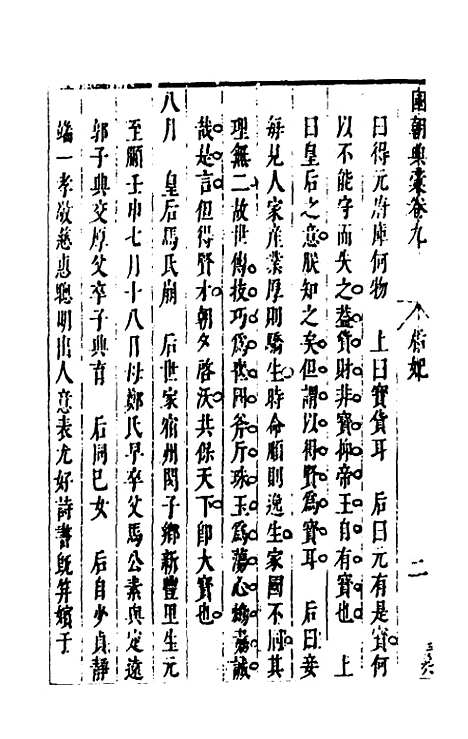 國朝典彙卷九 后妃 二
曰得元府庫何物 上曰寶貨耳 后曰元有是寶何
以不能守而失之蓋貨財非寶抑帝王自有寶也 上
曰皇后之意朕知之矣但謂以得賢為寶耳 后曰妾
每見人家產業厚則驕生時命順則逸生家國不同其
理無二故世傳技巧為喪國斧斤珠玉為蕩心鴆毒誠
哉是言但得賢才朝夕啓沃共保天下卽大寶也
八月 皇后馬氏崩 后世家宿州閔子鄉新豐里生元
至順壬申七月十八日母鄭氏早卒父馬公素與定遠
郭子興交厚父卒子興育 后同己女 后自少貞靜
端一孝敬慈惠聰明出人意表尤好詩書旣笄嬪于